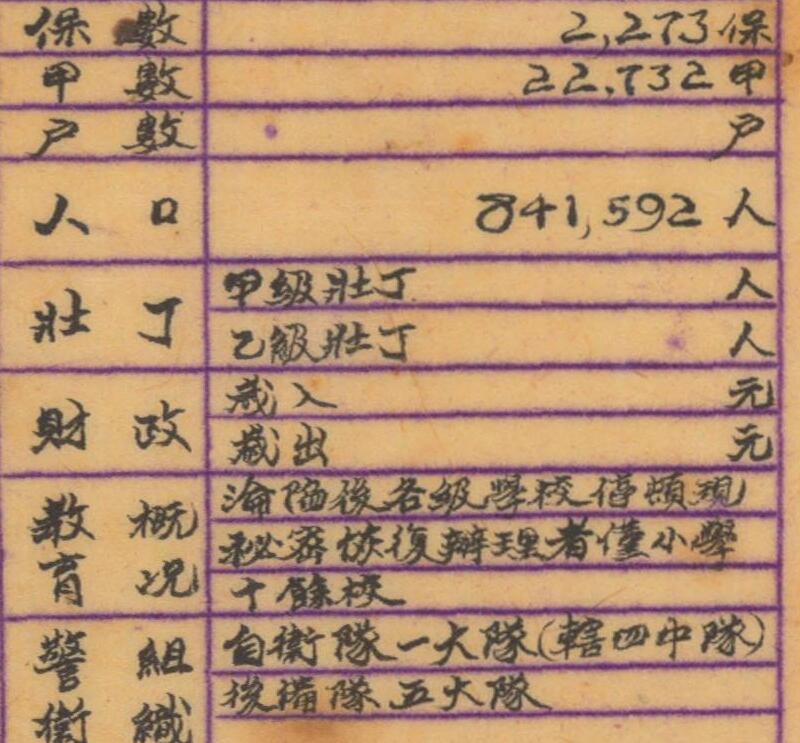 保數 2,273保
甲數 22,732甲
户數 户
人口 841,592人
壯丁 甲級壯丁 人
乙級壯丁 人
財政 歲入 元
歲出 元
教育概况 淪陷後各級學校停頓現
秘密恢復辦理者僅小學
十餘校
警衛組織 自衛隊一大隊(轄四中隊)
後備隊五大隊